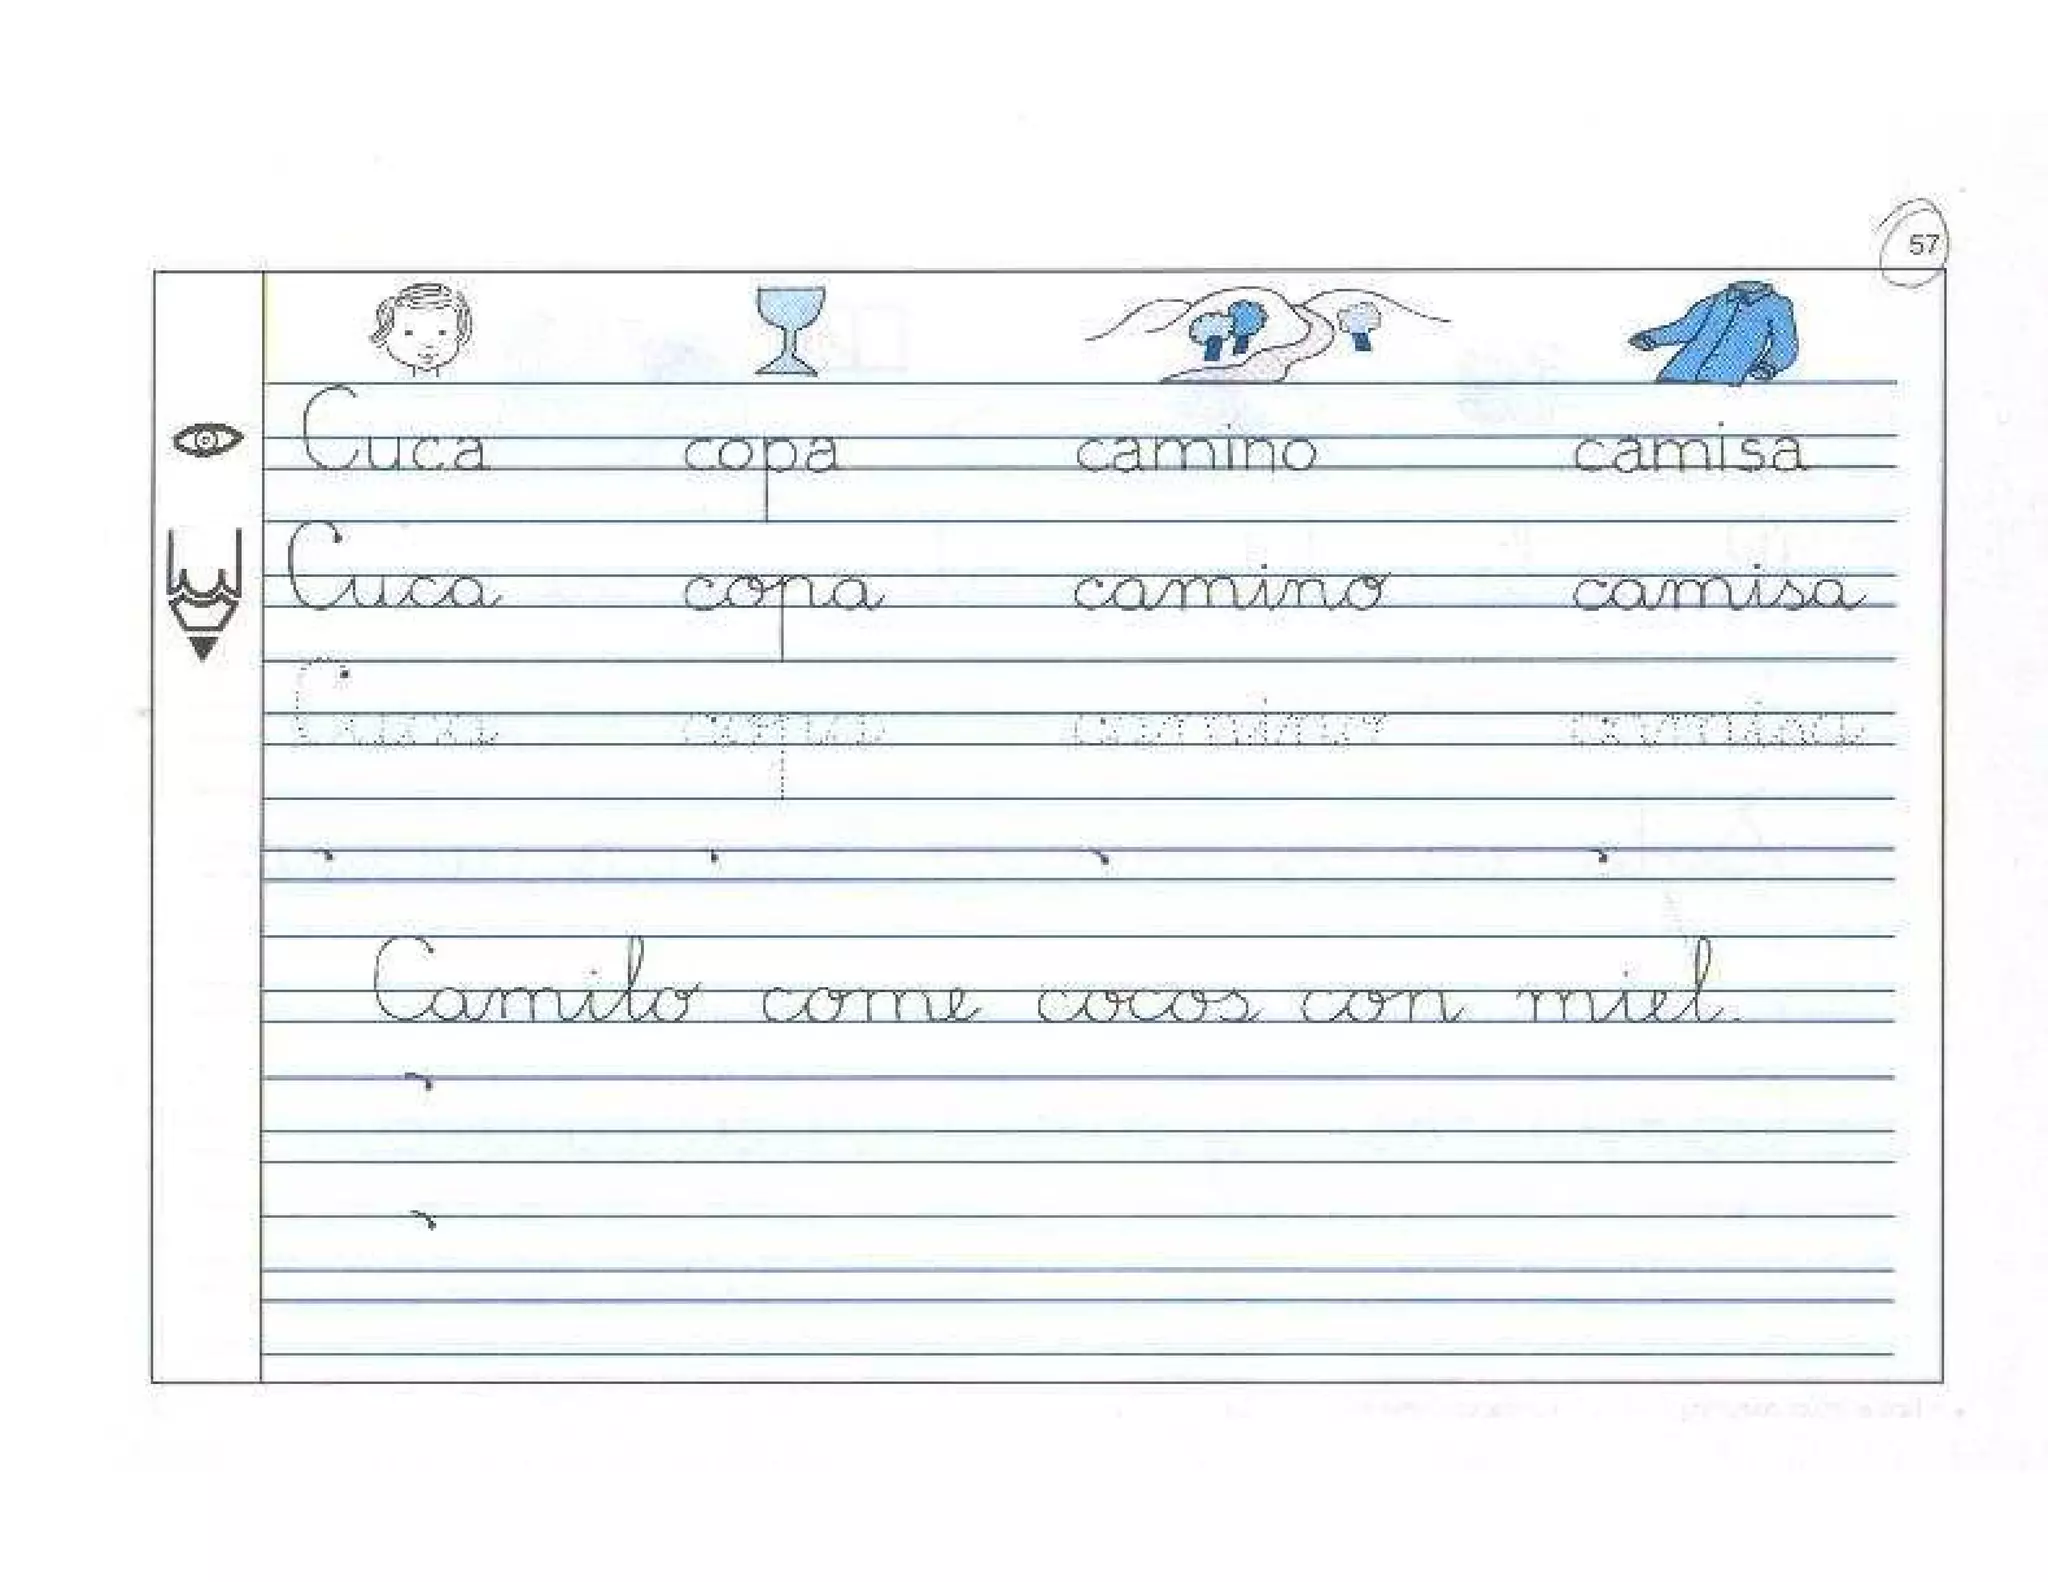 57
Cuca copa camino camisa
Cuca copa camino camisa
Cuca copa camino camisa
Camilo come cocos con miel.